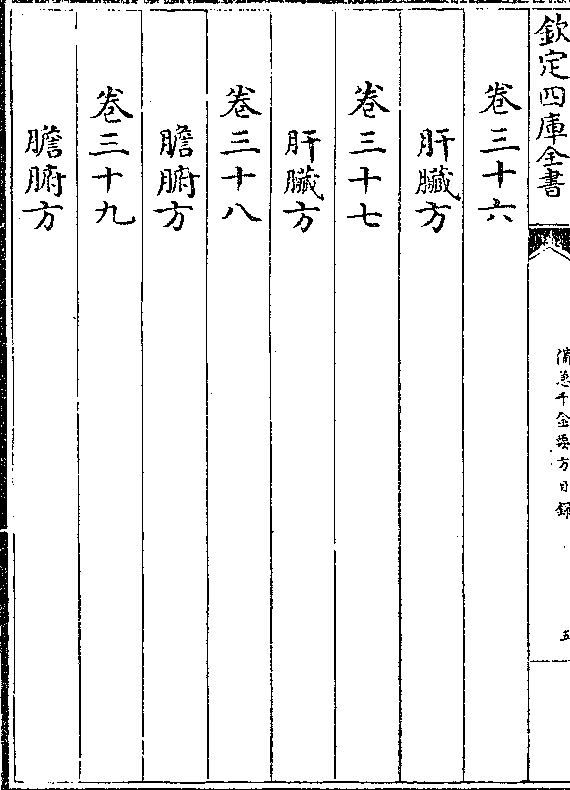 欽定四庫全書
備急千金要方目錄
五
卷三十六
肝臟方
卷三十七
肝臟方
卷三十八
膽腑方
卷三十九
膽腑方